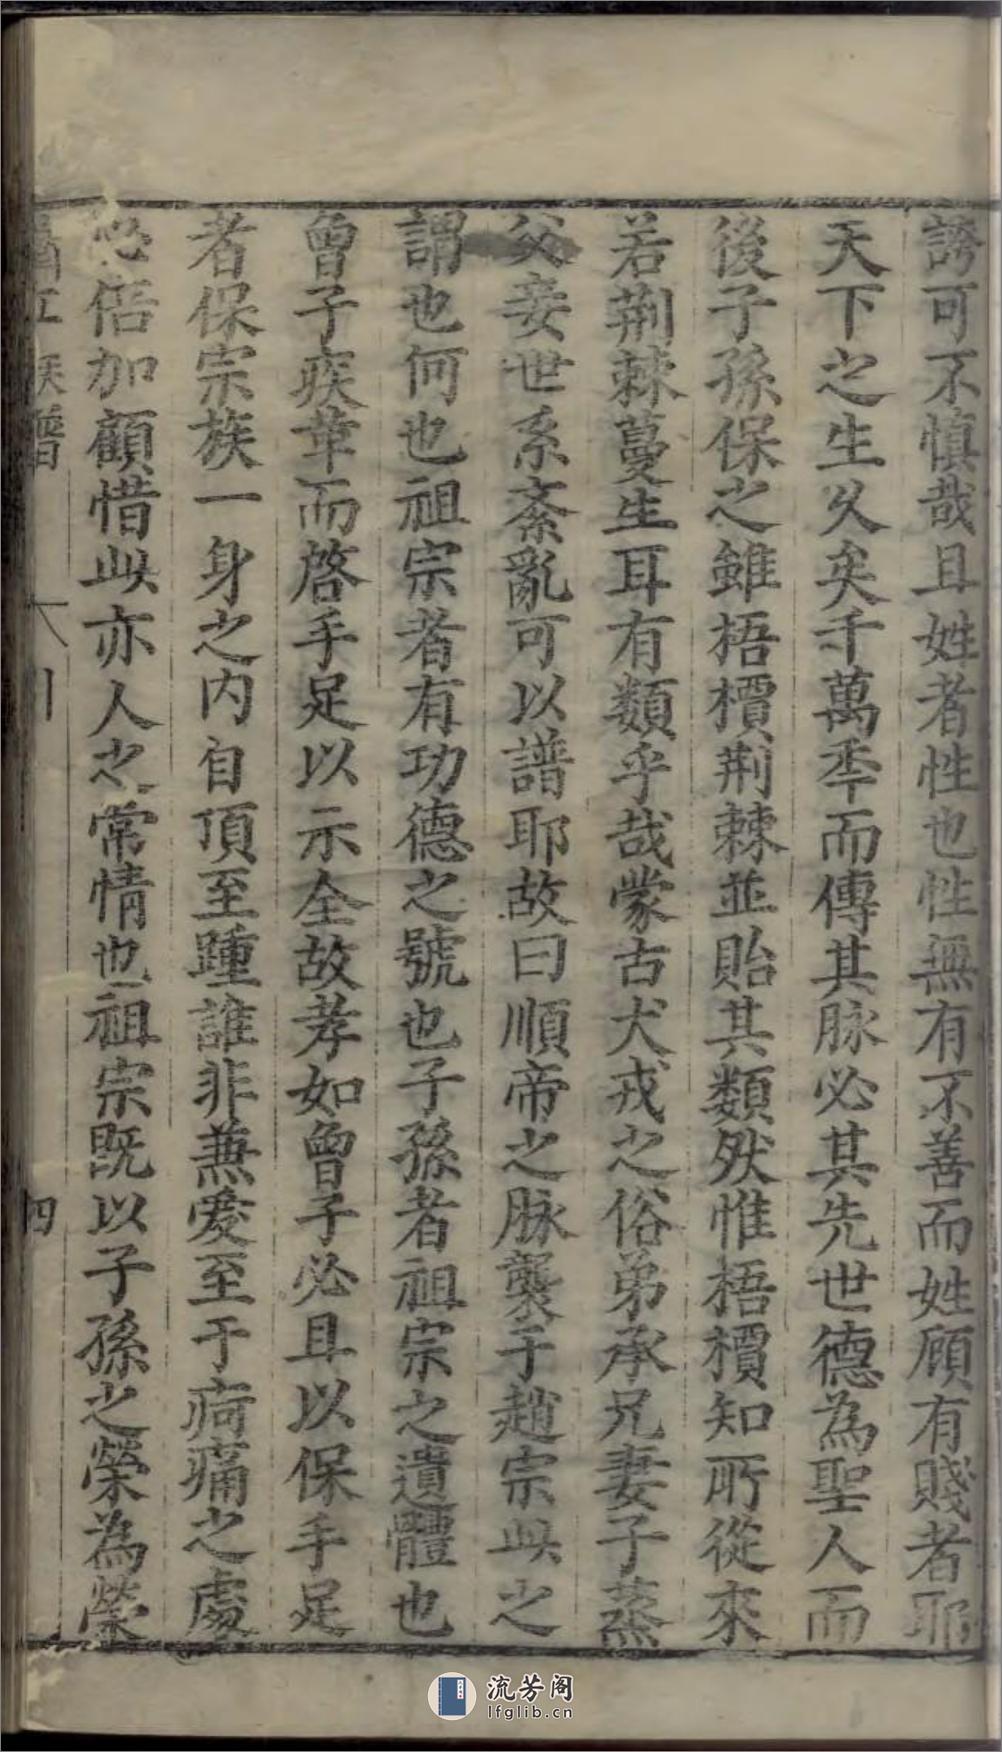 誇可不慎哉且姓者性也性無有不善而姓顧有賤者耶
天下之生久矣千萬季而傳其脉必其先世德為聖人而
後子孫保之雖梧檟荆棘並貽其類然惟梧檟知所從來
若荆棘蔓生耳有類乎哉蒙古犬戎之俗弟承兄妻子蒸
父妾世系紊亂可以譜耶故曰順帝之脉襲于趙宗此之
謂也何也祖宗者有功德之號也子孫者祖宗之遺體也
曾子疾革而啓手足以示全故孝如曾子必且以保手足
者保宗族一身之内自頂至踵誰非兼愛至于疴痛之處
必倍加顧惜此亦人之常情也祖宗既以子孫之榮為榮
族譜
引
四
流芳阁
lfglib.cn